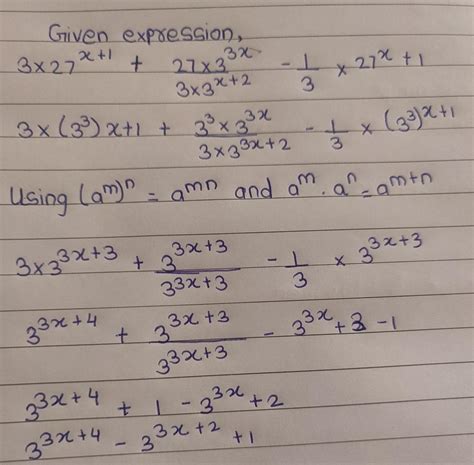 Given expression,
3 × 27^{x+1} + \frac{27 × 3^{3x}}{3 × 3^{x+2}} - \frac{1}{3} × 27^{x} + 1
3 × (3^3) x+1 + \frac{3^3 × 3^{3x}}{3 × 3^{3x+2}} - \frac{1}{3} × (3^3)^{x+1}
Using (a^m)^n = a^{mn} and a^m . a^n = a^{m+n}
3 × 3^{3x+3} + \frac{3^{3x+3}}{3^{3x+3}} - \frac{1}{3} × 3^{3x+3}
3^{3x+4} + \frac{3^{3x+3}}{3^{3x+3}} - 3^{3x} + 3 - 1
3^{3x+4} + 1 - 3^{3x} + 2
3^{3x+4} - 3^{3x+2} + 1